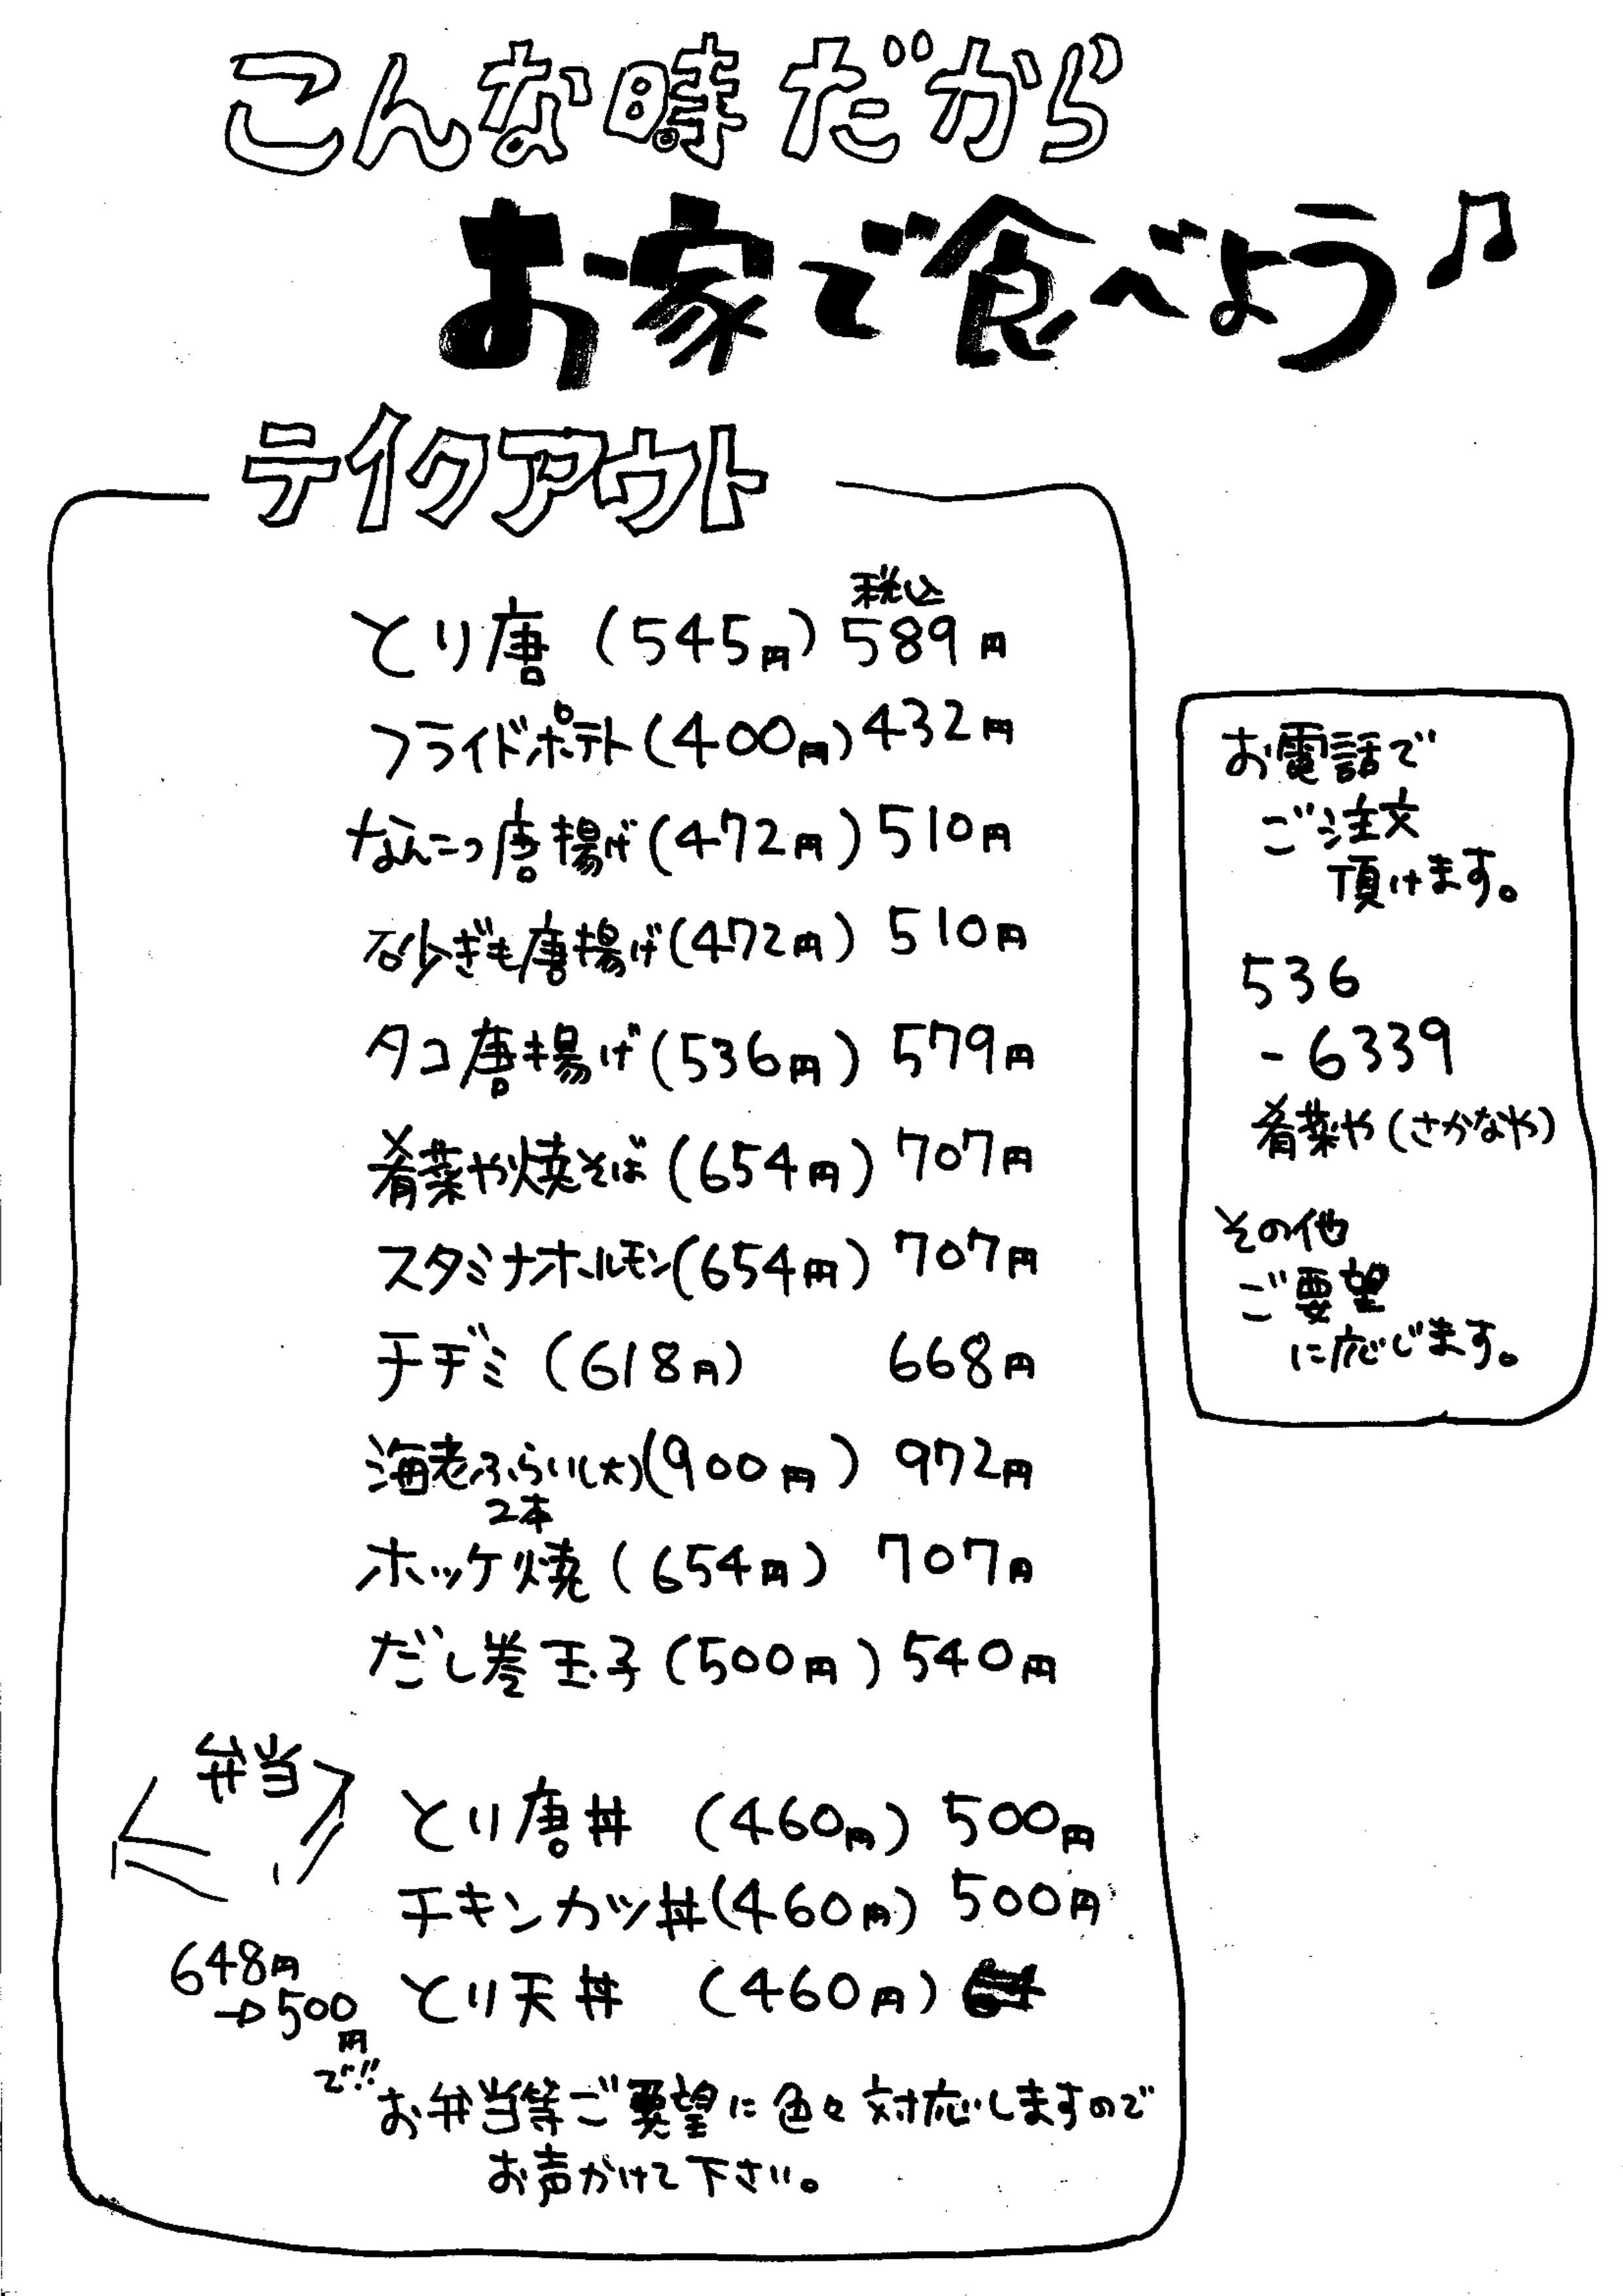 こんな時だから
お家で食べよう♫
テイクアウト
税込
とり唐 (545円) 589円
フライドポテト(400円) 432円
なんこつ唐揚げ(472円) 510円
砂ぎも唐揚げ(472円) 510円
タコ唐揚げ(536円) 579円
肴菜や焼そば(654円) 707円
スタミナホルモン(654円) 707円
チヂミ (618円) 668円
海老ふらい(大)(900円) 972円
2本
ホッケ焼 (654円) 707円
だし巻玉子 (500円) 540円
弁当
とり唐丼 (460円) 500円
チキンカツ丼(460円) 500円
とり天丼 (460円)
648円
→500
円
で!!
お弁当等ご要望に色々対応しますので
お声かけて下さい。
お電話で
ご注文
頂けます。
536
-6339
肴菜や(さかなや)
その他
ご要望
に応じます。